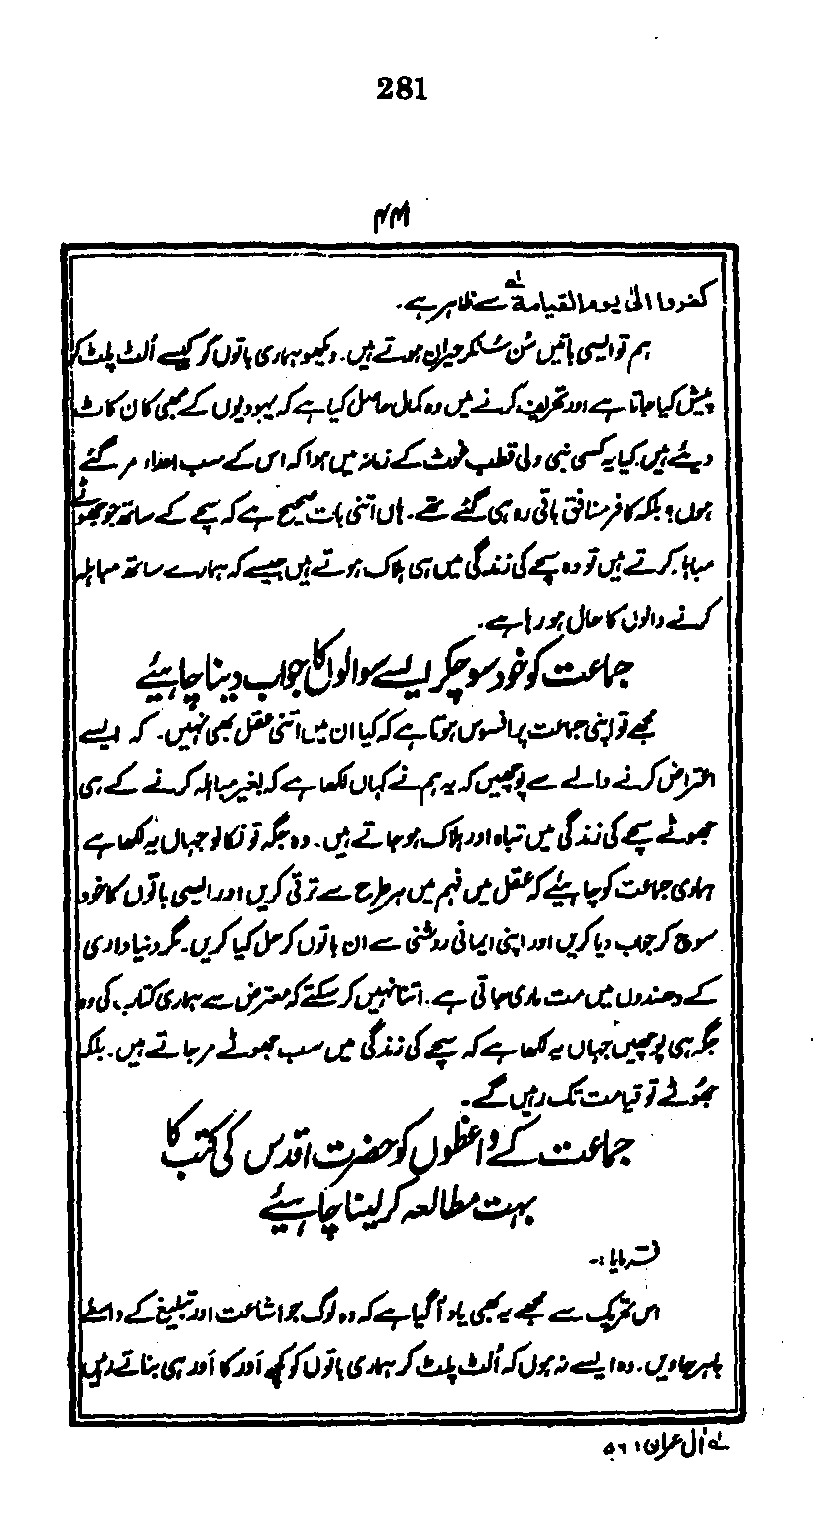 281
۴۴۱
کفروا الیٰ یوم القیامۃ لہ سے ظاہر ہے۔
ہم تو ایسی باتیں سُن سُنکر حیران ہوتے ہیں۔ دیکھو ہماری باتوں کو کیسے اُلٹ پلٹ کر
پیش کیا جاتا ہے اور تحریف کرنے میں وہ کمال حاصل کیا ہے کہ یہودیوں کے بھی کان کاٹ
دیئے ہیں۔ کیا یہ کسی نبی، ولی قطب غوث کے زمانہ میں ہوا کہ اس کے سب اعداء مر گئے
ہوں؟ بلکہ کافر منافق باقی رہ ہی گئے تھے۔ ہاں اتنی بات صحیح ہے کہ سچے کے ساتھ جو جھوٹے
مباہلہ کرتے ہیں تو وہ سچے کی زندگی میں ہی ہلاک ہوتے ہیں جیسے کہ ہمارے ساتھ مباہلہ
کرنے والوں کا حال ہو رہا ہے۔
جماعت کو خود سوچکر ایسے سوالوں کا جواب دینا چاہیئے
مجھے تو اپنی جماعت پر افسوس ہوتا ہے کہ کیا ان میں اتنی عقل بھی نہیں۔ کہ ایسے
اعتراض کرنے والے سے پوچھیں کہ یہ ہم نے کہاں لکھا ہے کہ بغیر مباہلہ کرنے کے ہی
جھوٹے سچے کی زندگی میں تباہ اور ہلاک ہو جاتے ہیں۔ وہ جگہ تو نکالو جہاں یہ لکھا ہے
ہماری جماعت کو چاہیئے کہ عقل میں فہم میں ہر طرح سے ترقی کریں اور ایسی باتوں کا خود
سوچ کر جواب دیا کریں اور اپنی ایمانی روشنی سے ان باتوں کو حل کیا کریں۔ مگر دنیا داری
کے دھندوں میں مت ماری جاتی ہے۔ اتنا نہیں کر سکتے کہ معترض سے ہماری کتاب کی وہ
جگہ ہی پوچھیں جہاں یہ لکھا ہے کہ سچے کی زندگی میں سب جھوٹے مر جاتے ہیں۔ بلکہ
جھوٹے تو قیامت تک رہیں گے۔
جماعت کے واعظوں کو حضرت اقدس کی کتب کا
بہت مطالعہ کر لینا چاہیئے
فرمایا:۔
اس تحریک سے مجھے یہ بھی یاد آ گیا ہے کہ وہ لوگ جو اشاعت اور تبلیغ کے واسطے
باہر جاویں۔ وہ ایسے نہ ہوں کہ اُلٹ پلٹ کر ہماری باتوں کو کچھ اَور کا اَور ہی بناتے رہیں
لہ اٰل عمران: ۵۶